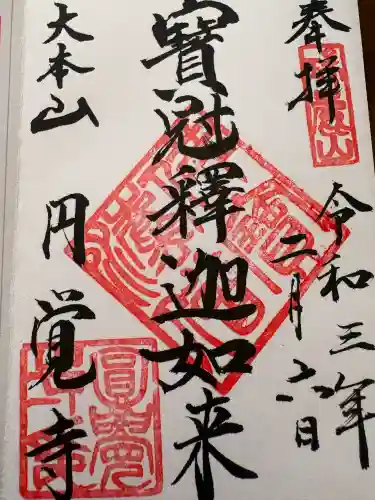 奉拝
令和三年
二月六日
寳冠釋迦如来
大本山
円覚寺